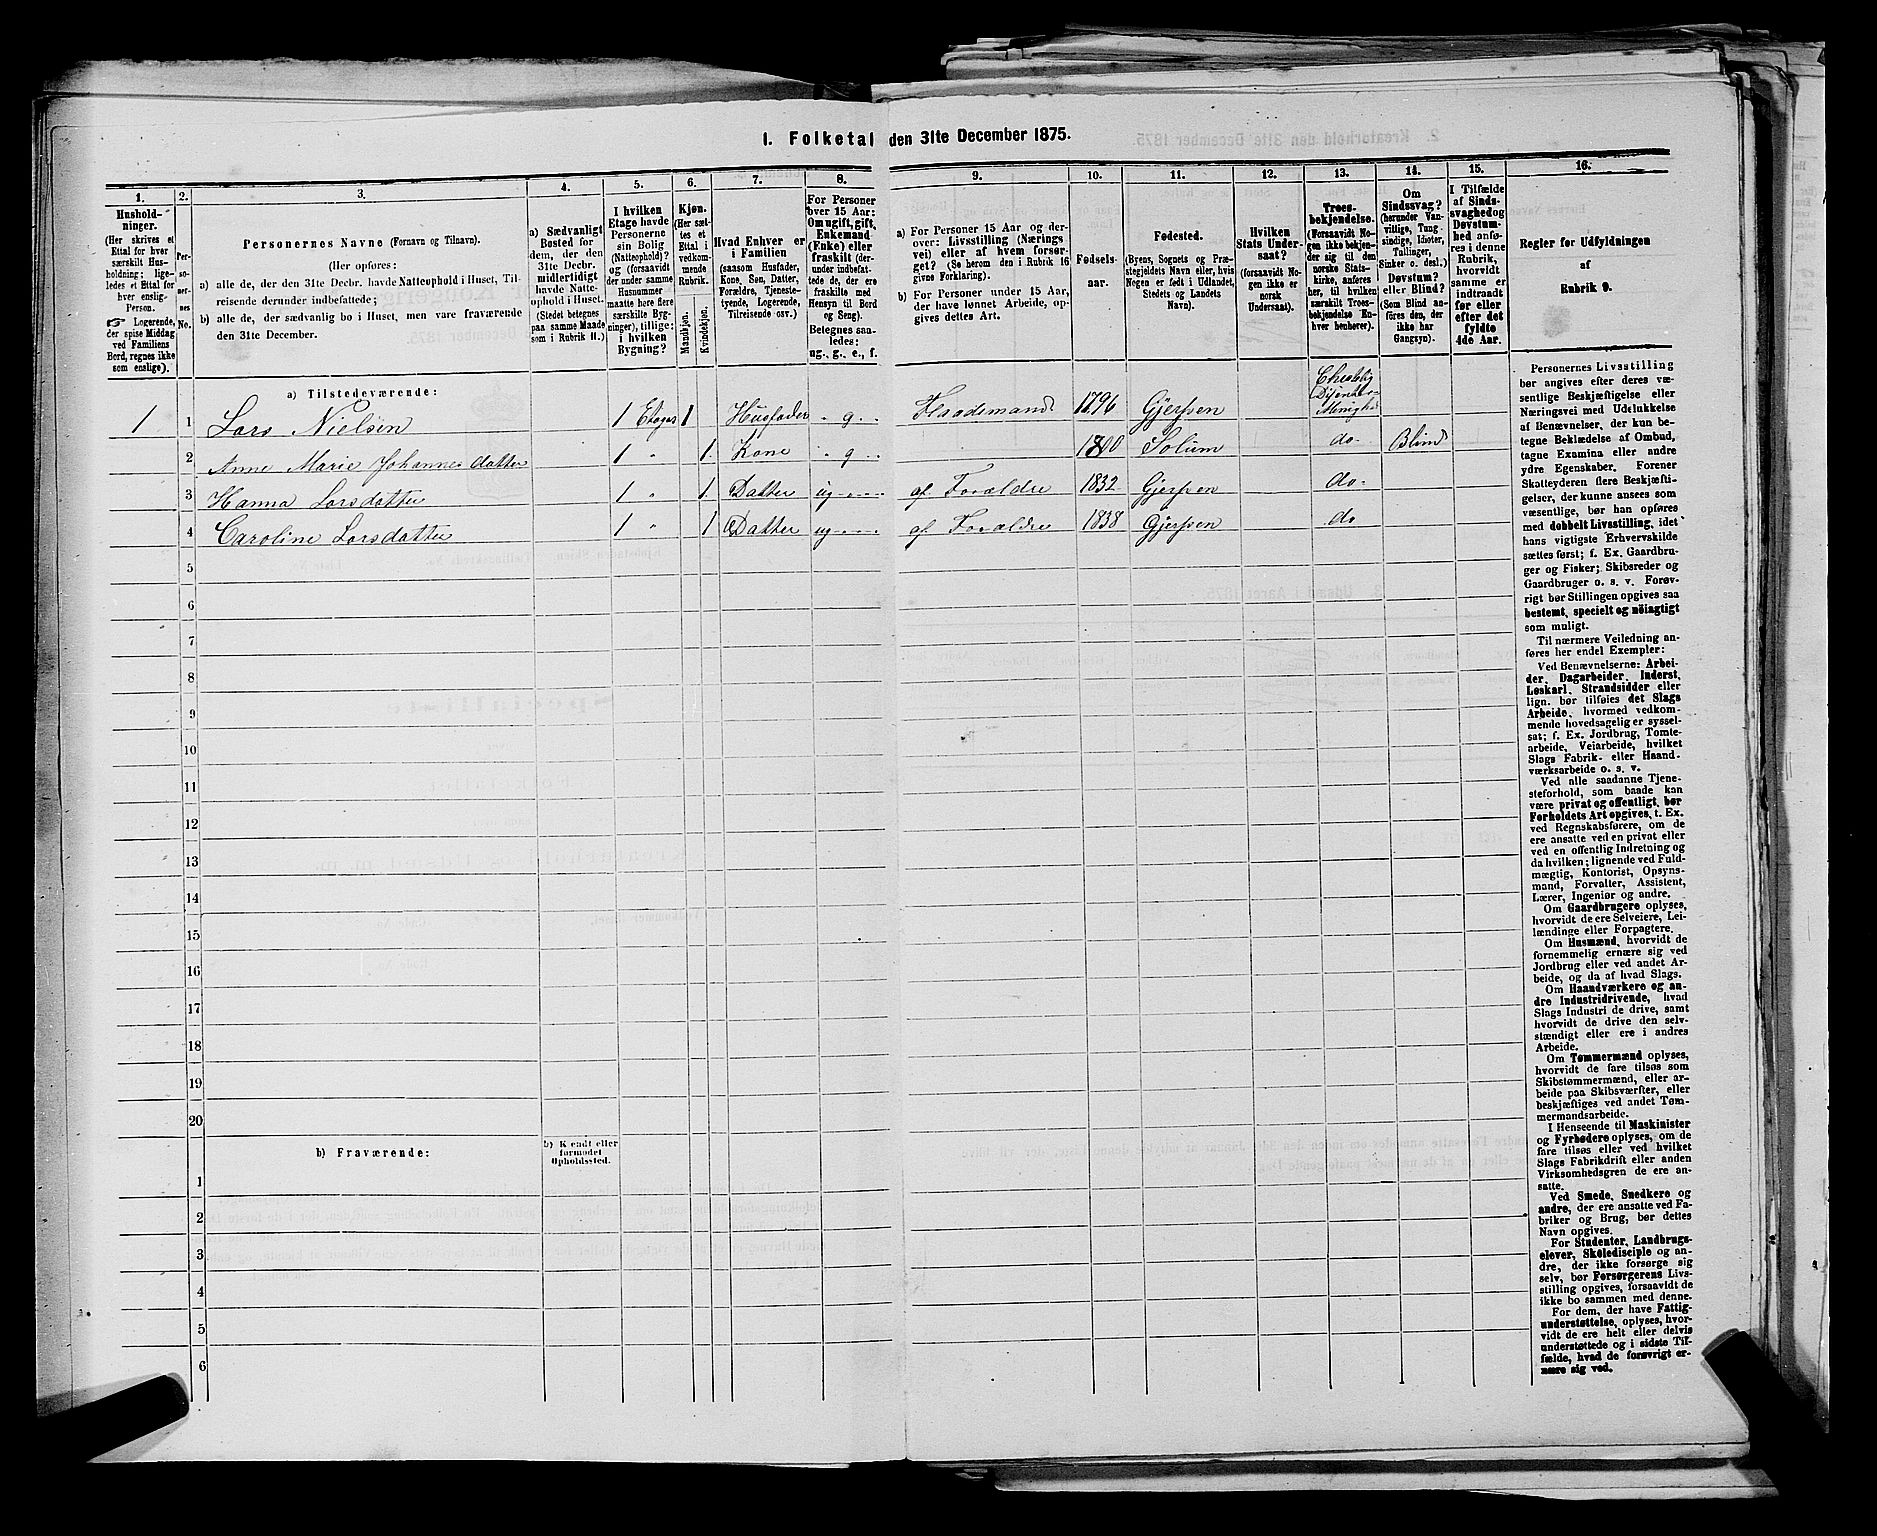 1. Folketal den 31te December 1875.
1. 2. 3. 4. 5. 6. 7. 8. 9. 10. 11. 12. 13. 14. 15. 16.
Hushold-
ninger.
(Her skrives et
Ettal for hver
særskilt Hus-
holdning; lige-
ledes et Ettal for
hver enslig
Person.
☞ Logerende,
der spise Middag
ved Familiens
Bord, regnes ikke
som enslige).
Per-
so-
ner-
nes
No.
Personernes Navne (Fornavn og Tilnavn).
(Her opføres:
a) alle de, der den 31te Decbr. havde Natteophold i Huset, Til-
reisende derunder indbefattede;
b) alle de, der sædvanlig bo i Huset, men vare fraværende
den 31te December.
a) Sædvanligt
Bosted for
dem, der den
31te Decbr.
midlertidigt
havde Natte-
ophold i Huset.
(Stedet betegnes
paa samme Maade
som i Rubrik 11.)
I hvilken
Etage havde
Personerne
sin Bolig
(Natteophold)?
og (forsaavidt
der under samme
Husnummer
maatte høre flere
særskilte Byg-
ninger), tillige:
i hvilken
Bygning?
Kjøn.
(Her sæt-
tes et
Ettal i
vedkom-
mende
Rubrik.
Mandkjøn.
Kvindekjøn.
Hvad Enhver er
i Familien
(saasom Husfader,
Kone, Søn, Datter,
Forældre, Tjeneste-
tyende, Logerende,
Tilreisende osv.)
For Personer
over 15 Aar:
Om ugift, gift,
Enkemand
(Enke) eller
fraskilt (der-
under indbefat-
tede de, der ere
fraskilte med
Hensyn til Bord
og Seng).
Betegnes saa-
ledes:
ug., g., e., f.
a) For Personer 15 Aar og der-
over: Livsstilling (Nærings
vei) eller af hvem forsør-
get? (Se herom den i Rubrik 16
givne Forklaring).
b) For Personer under 15 Aar,
der have lønnet Arbeide, op-
gives dettes Art.
Fødsels-
aar.
Fødested.
(Byens, Sognets og Præ-
stegjeldets Navn eller, hvis
Nogen er født i Udlandet,
Stedets og Landets
Navn).
Hvilken
Stats Under-
saat?
(forsaavidt No-
gen ikke er
norsk
Undersaat).
Troes-
bekjendelse.
(Forsaavidt No-
gen ikke bekjen-
der sig til den
norske Stats-
kirke, anføres
her, til hvilken
særskilt Troes-
bekjendelse En-
hver henhører).
Om
Sindssvag?
(herunder Van-
vittige, Tung-
sindige, Idioter,
Tullinger,
Sinker o. desl.)
Døvstum?
eller Blind?
(Som Blind an-
føres den, der
ikke har
Gangsyn).
I Tilfælde
af Sinds-
svaghed og
Døvstum-
hed anfø-
res i denne
Rubrik,
hvorvidt
samme er
indtraadt
før eller
efter det
fyldte
4de Aar.
Regler for Udfyldningen
af
Rubrik 9.
a) Tilstedeværende:
1 1 Lars Nielsen 1 Etager 1 Husfader " g. Gjerpen 1796
2 Anne Marie Johannesdatter 1 " 1 Kone " g. 1800 Solum do- Blind
3 Hanna Larsdatter 1 " 1 Datter ug af Forældre 1832 Gjerpen do-
4 Caroline Larsdatter 1 " 1 Datter ug af Forældre 1838 Gjerpen do
5
6
7
8
9
10
11
12
13
14
15
16
17
18
19
20
b) Fraværende:
b) Kjendt eller
formodet
Opholdssted.
1
2
3
4
5
6
Personernes Livsstilling
bør angives efter deres væ-
sentlige Beskjæftigelse eller
Næringsvei med Udelukkelse
af Benævnelser, der kun be-
tegne Beklædelse af Ombud,
tagne Examina eller andre
ydre Egenskaber. Forener
Skatteyderen flere Beskjæfti-
gelser, der kunne ansees som
væsentlige, bør han opføres
med dobbelt Livsstilling, idet
hans vigtigste Erhvervskilde
sættes først; f. Ex. Gaardbru-
ger og Fisker; Skibsreder og
Gaardbruger o. s. v. Forøv-
rigt bør Stillingen opgives saa
bestemt, specielt og nöiagtigt
som muligt.
Til nærmere Veiledning an-
føres her endel Exempler:
Ved Benævnelserne: Arbei-
der, Dagarbeider, Inderst,
Løskarl, Strandsidder eller
lign. bør tilføies det Slags
Arbeide, hvormed vedkom-
mende hovedsagelig er syssel-
sat; f. Ex. Jordbrug, Tomte-
arbeide, Veiarbeide, hvilket
Slags Fabrik- eller Haand-
værksarbeide o. s. v.
Ved alle saadanne Tjene-
steforhold, som baade kan
være privat og offentligt, bør
Forholdets Art opgives, t. Ex.
ved Regnskabsførere, om de
ere ansatte ved en privat eller
ved en offentlig Indretning og
da hvilken; lignende ved Fuld-
mægtig, Kontorist, Opsyns-
mand, Forvalter, Assistent,
Lærer, Ingeniør og andre.
Om Gaardbrugere oplyses,
hvorvidt de ere Selveiere, Lei-
lændinge eller Forpagtere.
Om Husmænd, hvorvidt de
fornemmelig ernære sig ved
Jordbrug eller ved andet Ar-
beide, og da af hvad Slags.
Om Haandværkere og an-
dre Industridrivende, hvad
Slags Industri de drive, samt
hvorvidt de drive den selv-
stændigt eller ere i andres
Arbeide.
Om Tømmermænd oplyses,
hvorvidt de fare tilsøs som
Skibstømmermænd, eller ar-
beide paa Skibsværfter, eller
beskjæftiges ved andet Tøm-
mermandsarbeide.
I Henseende til Maskinister
og Fyrbødere oplyses, om de
fare tilsøs eller ved hvilket
Slags Fabrikdrift eller anden
Virksomhedsgren de ere an-
satte.
Ved Smede, Snedkere og
andre, der ere ansatte ved Fa-
briker og Brug, bør dettes
Navn opgives.
For Studenter, Landbrugs-
elever, Skoledisciple og an-
dre, der ikke forsørge sig
selv, bør Forsørgerens Livs-
stilling opgives, forsaavidt de
ikke bo sammen med denne.
For dem, der have Fattig-
understøttelse, oplyses, hvor-
vidt de ere helt eller delvis
understøttede og i sidste Til-
fælde, hvad de forøvrigt er-
nære sig ved.